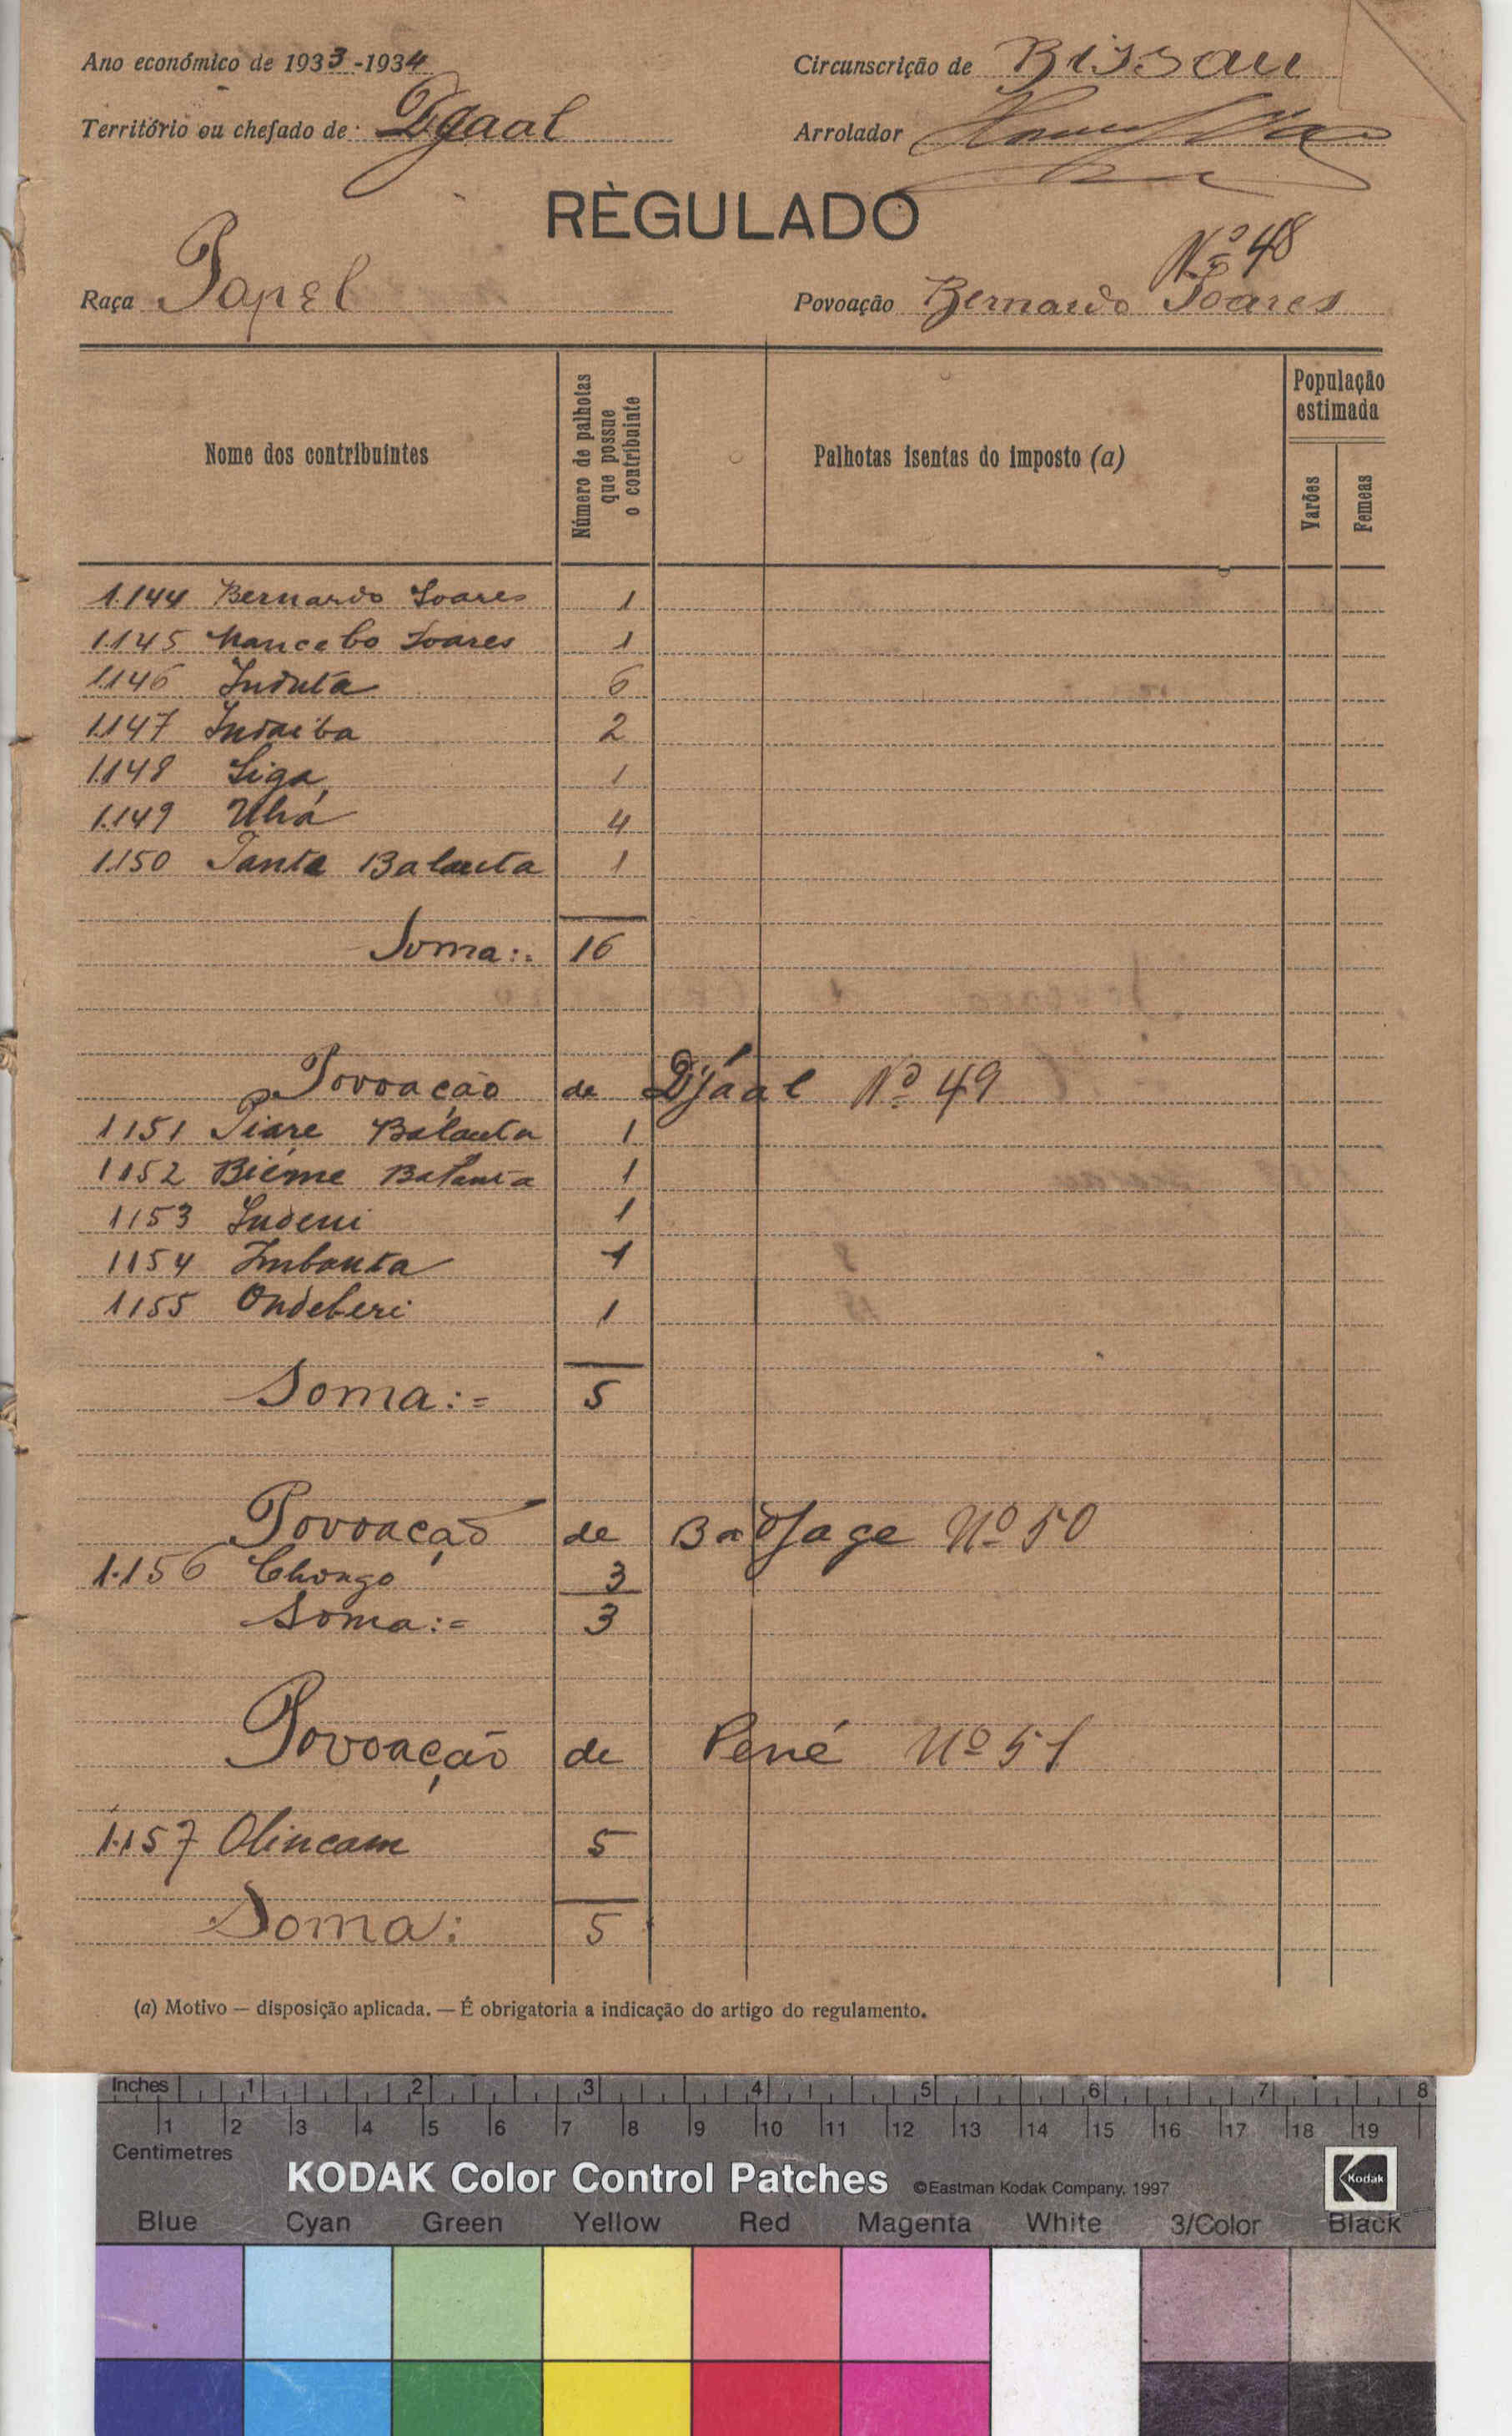 Ano económico de 1933-1934 Circunscrição de Bissau
Território ou chefado de Djaal Arrolador
RÈGULADO
Nº 48
Raça Papel Povoação Bernardo Soares
Nome dos contribuintes
Número de palhotas que possue o contribuinte
Palhotas isentas do imposto (a)
População estimada
Varões Femeas
1.144 Bernardo Soares 1
1.145 Mancebo Soares 1
1.146 Induta 6
1.147 Indaiba 2
1.148 Siga 1
1.149 Uhá 4
1.150 Tanta Balanta 1
Soma:. 16
Povoação de Djáal Nº 49
1151 Piare Balanta 1
1152 Biéme Balanta 1
1153 Indeni 1
1154 Imbanta 1
1155 Ondeberi 1
Soma:= 5
Povoação de Badjage Nº 50
1.156 Chongo 3
Soma:= 3
Povoação de Pené Nº 51
1.157 Olincam 5
Soma: 5
(a) Motivo — disposição aplicada. — É obrigatoria a indicação do artigo do regulamento.
Inches 1 2 3 4 5 6 7 8
1 2 3 4 5 6 7 8 9 10 11 12 13 14 15 16 17 18 19
Centimetres
KODAK Color Control Patches ©Eastman Kodak Company, 1997 Kodak
Blue Cyan Green Yellow Red Magenta White 3/Color Black